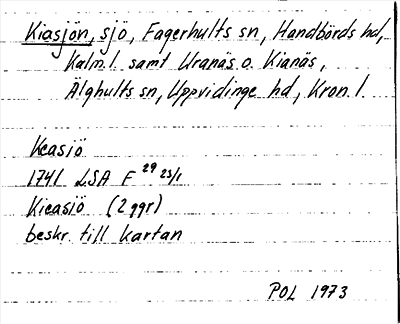 Kiasjön, sjö, Fagerhults sn, Handbörds hd,
Kalm.l. samt Uranäs o. Kianäs,
Älghults sn, Uppvidinge hd, Kron.l.
Keasiö
1741 LSA F 29 23/1
Kieasiö (2 ggr)
beskr. till kartan
POL 1973